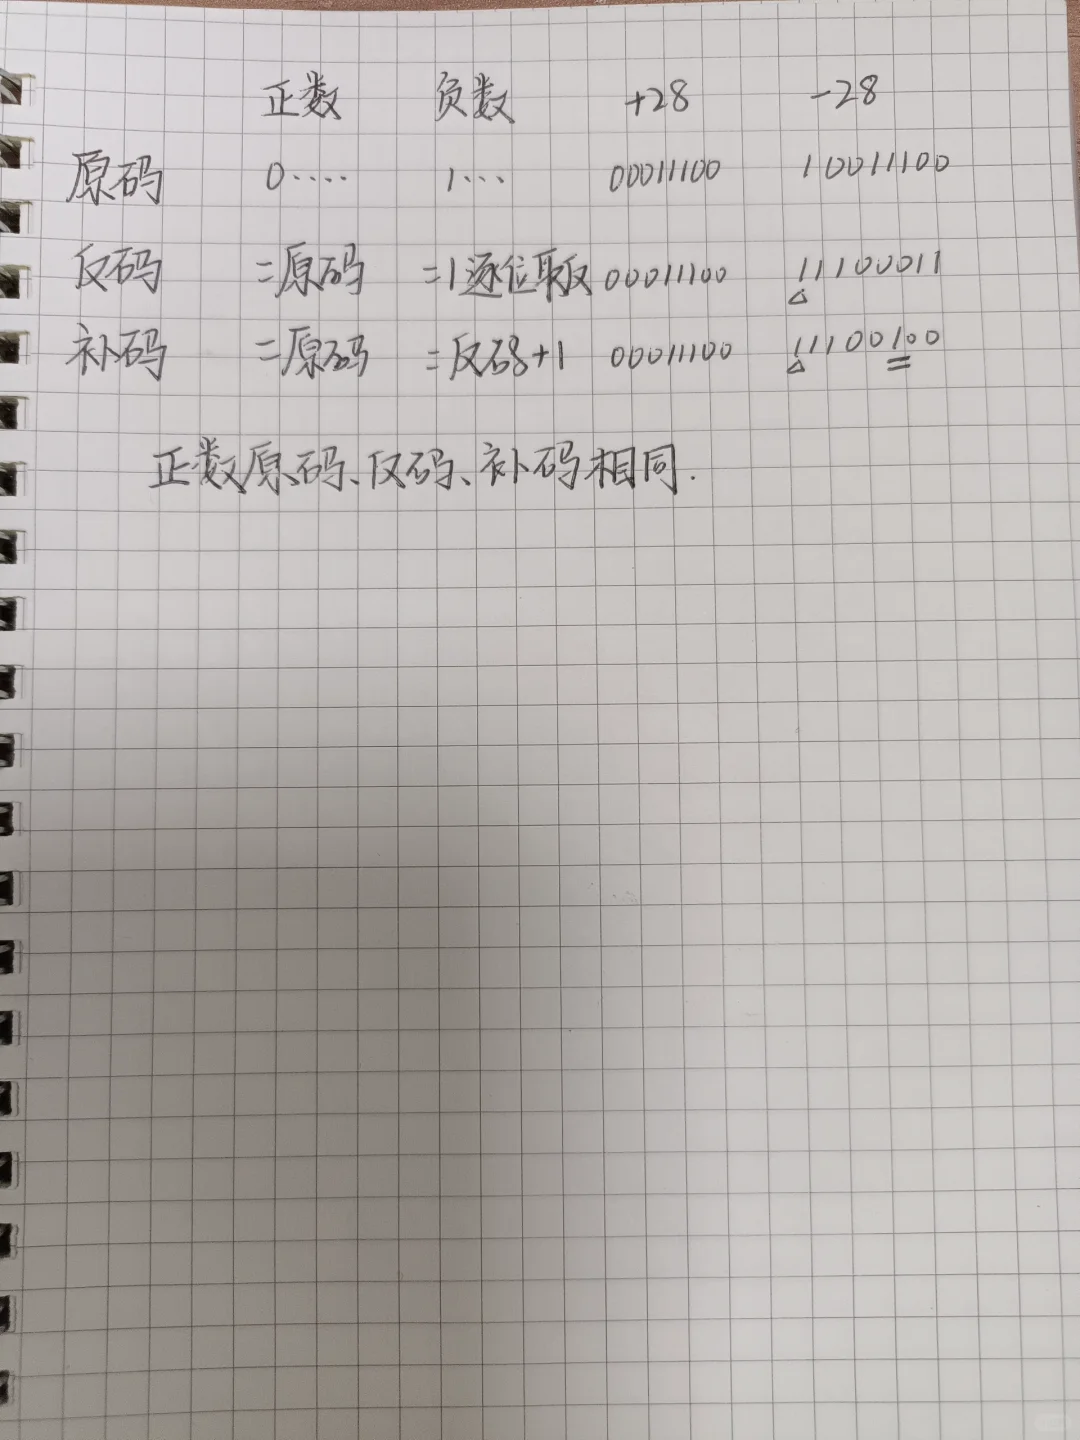 正数 负数 +28 -28
原码 0···· 1··· 00011100 10011100
反码 =原码 =1逐位取反 00011100 11100011
补码 =原码 =反码+1 00011100 11100100
正数原码、反码、补码相同.